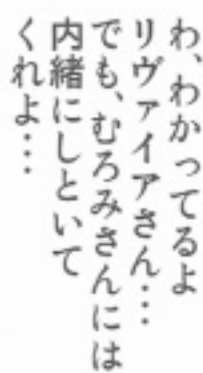 わ、わかってるよ
リヴァイアさん…
でも、むろみさんには
内緒にしといて
くれよ…